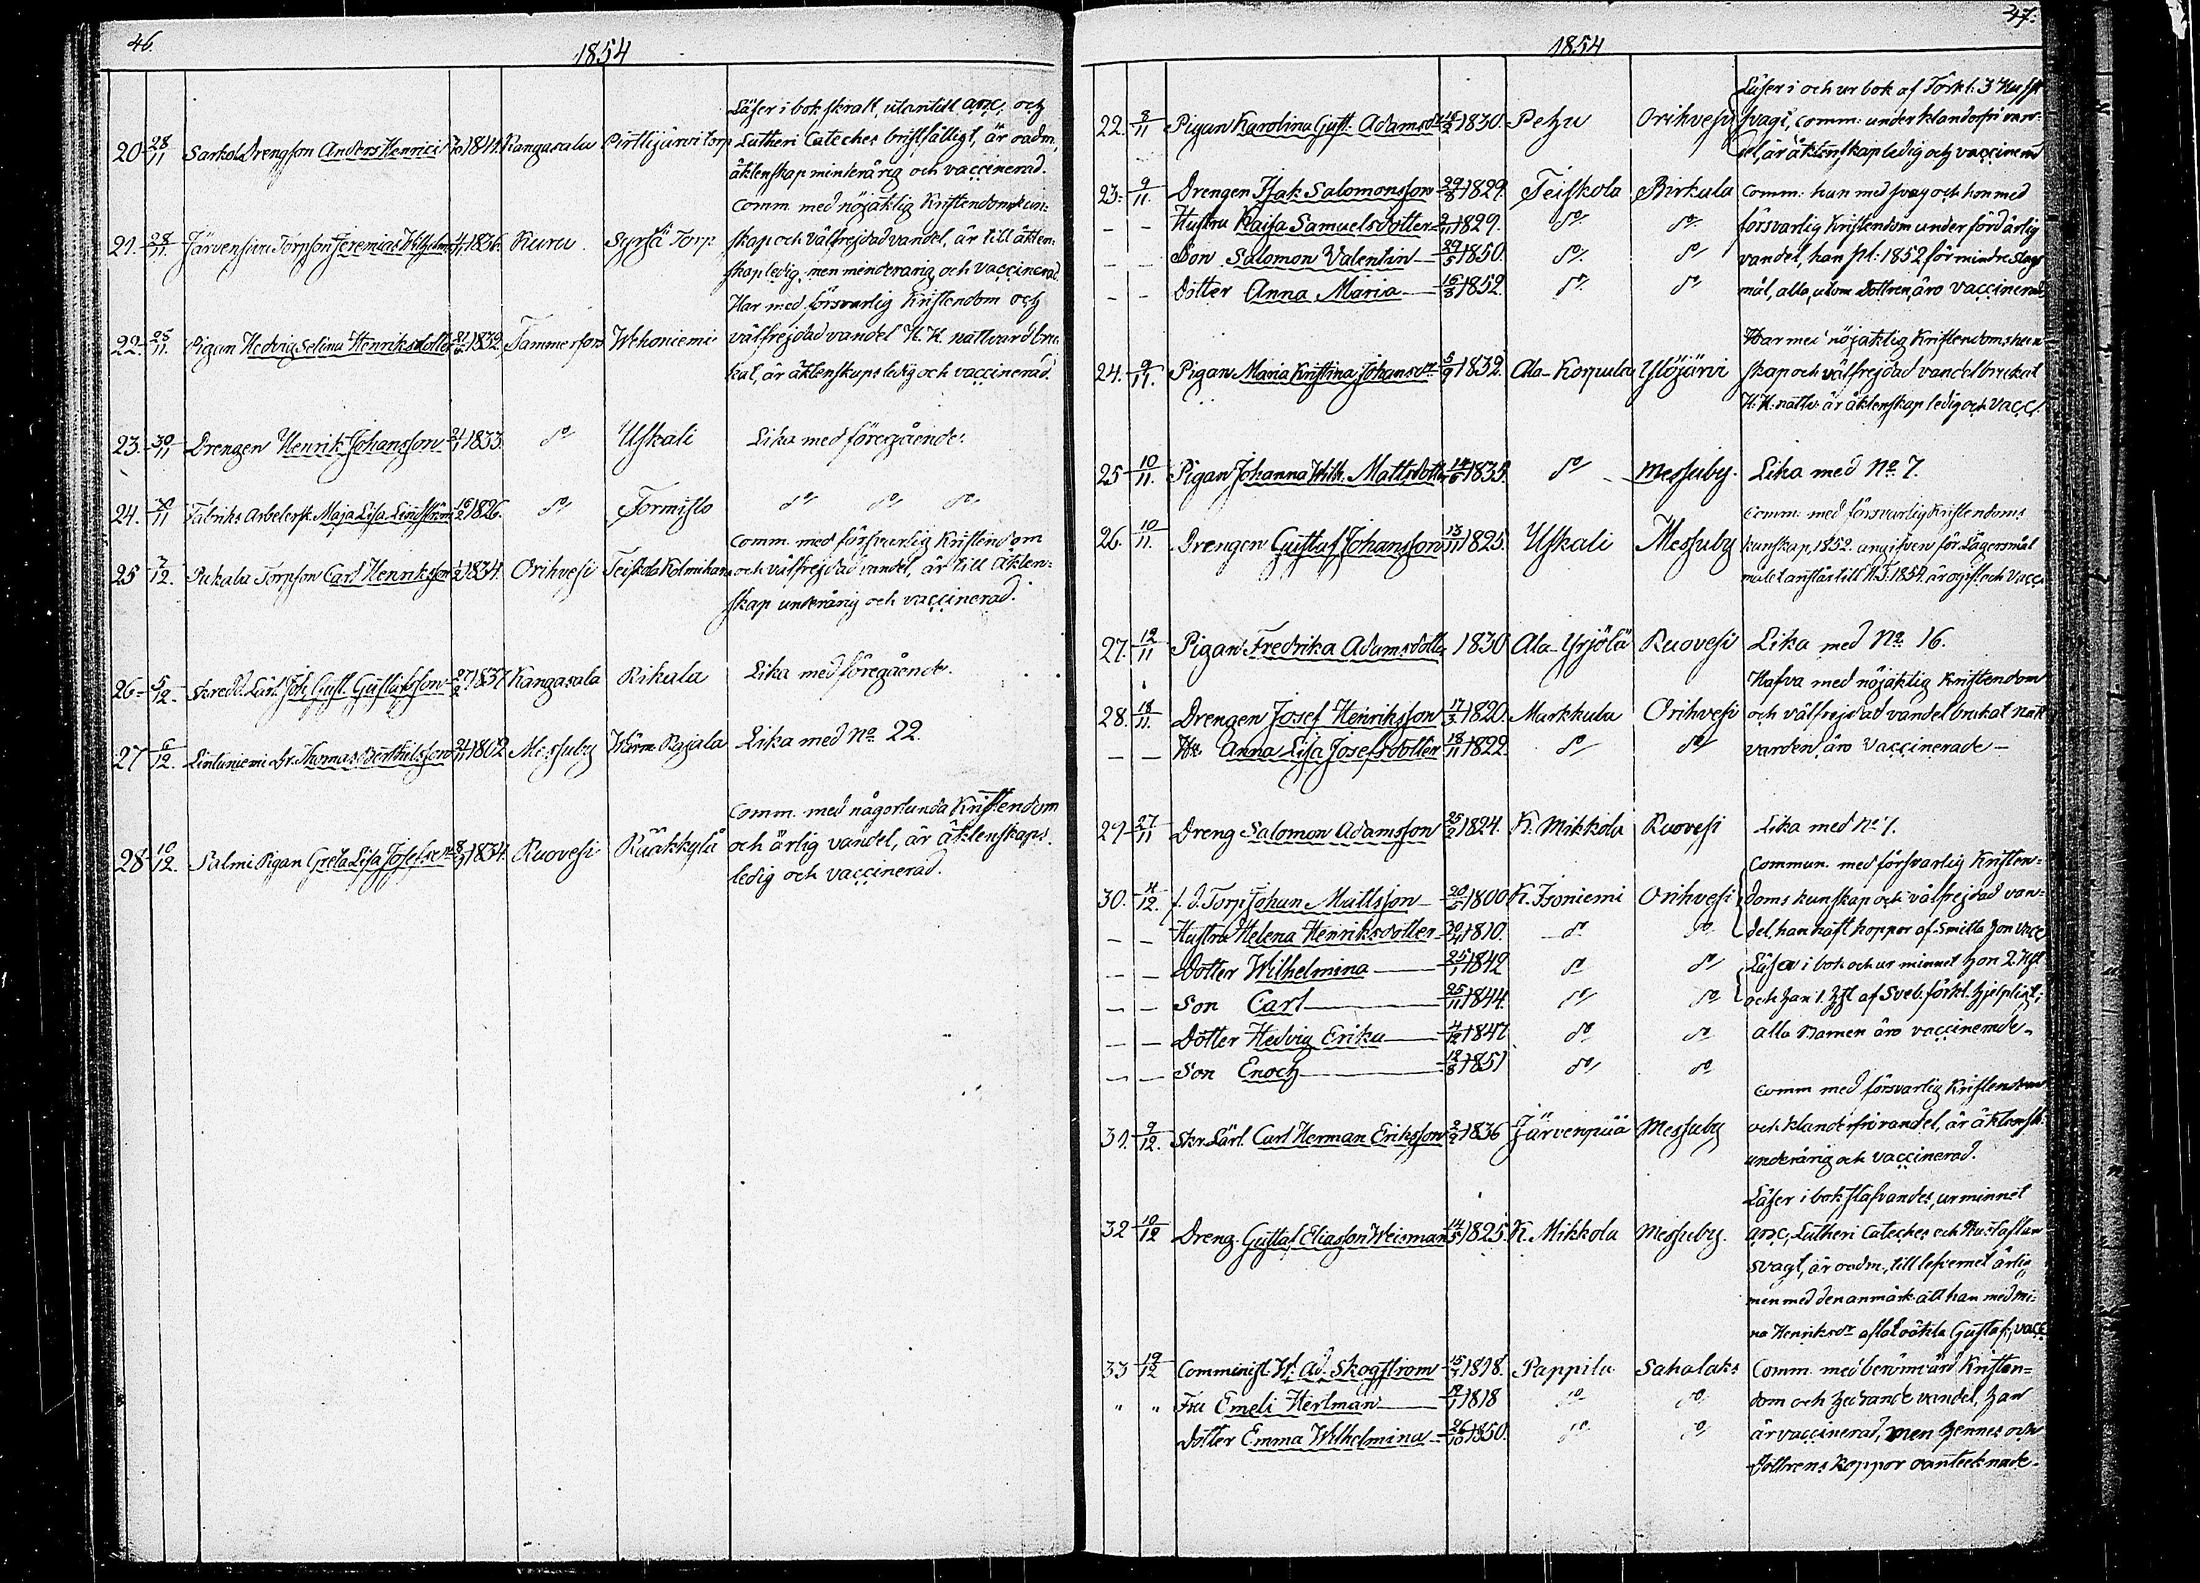 46.
1854
Läser i bok skralt, utantill abc, och
20. 28/11 Sarkola Drengson Anders Henrici 1841. Kangasala Pirttijärvi torp Lutheri Cateches bristfälligt, är oadm.
äktenskap minderårig och vaccinerad.
Comm. med nöjaktig Kristendomskun-
21. 28/11 Järvensivu Torpson Jeremias Wilhelms 1836. Kuru Syrjä Torp skap och välfrejdad vandel, är till äkten-
skap ledig, men minderårig och vaccinerad.
Har med försvarlig Kristendom och
22. 25/11 Pigan Hedvig Selina Henriksdotter 21/6 1832 Tammerfors Wehoniemi välfrejdad vandel H. H. nattvard bru-
kat, är äktenskaps ledig och vaccinerad.
23. 30/11 Drengen Henrik Johansson 21/1 1833. do Uskali Lika med föregående.
24. 30/11 Fabriks Arbetersk. Maja Lisa Lindström 16/2 1826. do Tormisto do do do
Comm. med försvarlig Kristendom
25 2/12. Pukala Torpson Carl Henriksson 1834. Orihvesi Teiskola Kolmihaara och välfrejdad vandel, är till äkten-
skap underårig och vaccinerad.
26. 5/12. Skredd. Lärl. Joh. Gust. Gustafsson 27/2 1837 Kangasala Rikala Lika med föregående.
27 6/12. Lintuniemi Dr. Thomas Berthilsson 21/11 1802 Messuby Wärm. Rajala Lika med No. 22.
Comm. med någorlunda Kristendom
28 10/12. Salmi Pigan Greta Lisa Josefsdr 1834. Ruovesi Rääkkylä och ärlig vandel, är äktenskaps
ledig och vaccinerad.
47.
1854
Läser i och ur bok af Förkl. 3 Hufst.
22. 8/11 Pigan Karolina Gust. Adamsdr 16/2 1830. Petzu Orihvesi svagt, comm. under klanderfri van-
del, är äktenskap ledig och vaccinerad
23. 9/11. Drengen Isak Salomonsson 29/8 1829. Teiskola Birkala Comm. han med svag och hon med
– – Hustru Kaisa Samuelsdotter 2/11 1829. do do försvarlig Kristendom under fördärlig
– – Son Salomon Valentin 29/5 1850. do do vandel, han pl. 1852 för mindre slags
– – Dotter Anna Maria 16/8 1852. do do mål, alla, utom dottren, äro vaccinerade
Har med nöjaktig Kristendomskun-
24. 9/11. Pigan Maria Kristina Johansdr 5/9 1832. Ala-Korpula Ylöjärvi skap och välfrejdad vandel brukat
H. H. nattv. är äktenskap ledig och vacc.
25 10/11. Pigan Johanna Wilh. Mattsdotter 14/6 1835. do Messuby. Lika med No. 7.
Comm. med försvarlig Kristendoms
26. 10/11. Drengen Gustaf Johansson 13/11 1825. Uskali Messuby kunskap, 1852. angifven för Lägersmål
målet anstår till H.T. 1854. är ogift och vacc.
27. 12/11 Pigan Fredrika Adamsdotter 1830 Ala-Yrjölä Ruovesi Lika med No. 16.
Hafva med nöjaktig Kristendom
28. 18/11. Drengen Josef Henriksson 17/3 1820. Markkula Orihvesi och välfrejdad vandel brukat natt
– – Hu Anna Lisa Josefsdotter 18/11 1822. do do varden, äro vaccinerade –
29. 27/11 Dreng Salomon Adamsson 25/2 1824. K. Mikkola Ruovesi Lika med No 7.
Commun. med försvarlig Kristen-
30. 4/12. f. d. Torp. Johan Mattsson 20/6 1800 K. Isoniemi Orihvesi doms kunskap och välfrejdad van-
– – Hustru Helena Henriksdotter 1810. do do del, han haft koppor af smitta hon vacc.
– – Dotter Wilhelmina 25/1 1842 do do Läser i bok och ur minnet hon 2 Hft
– – Son Carl 25/11 1844. do do och han 1. Hft af Sveb. förkl. hjelpligt;
– – Dotter Hedvig Erika 4/12 1847 do do alla barnen äro vaccinerade.
– – Son Enoch 18/8 1851 do do
Comm med försvarlig Kristendom
31. 9/12. Skr. Lärl. Carl Herman Eriksson 2/2 1836 Järvenpää Messuby och klanderfri vandel, är äktensk.
underårig och vaccinerad.
Läser i bok stafvandes, ur minnet
32 10/12 Dreng. Gustaf Eliasson Weisman 14/5 1825. K. Mikkola Messuby. abc, Lutheri Cateches och Hustaflan
svagt, är oadm., till lefvernet ärlig
men med den anmärk. att han med Mi-
na Henriksdr aflat oäkta Gustaf, vacc.
33 19/12 Comminist. W. Ad. Skogström 15/4 1818. Pappila Sahalaks Comm. med berömvärd Kristen-
" " Fru Emeli Heitman 1818 do do dom och hedrande vandel, han
Dotter Emma Wilhelmina 26/10 1850. do do är vaccinerad, men hennes och
dottrens koppor oantecknade.